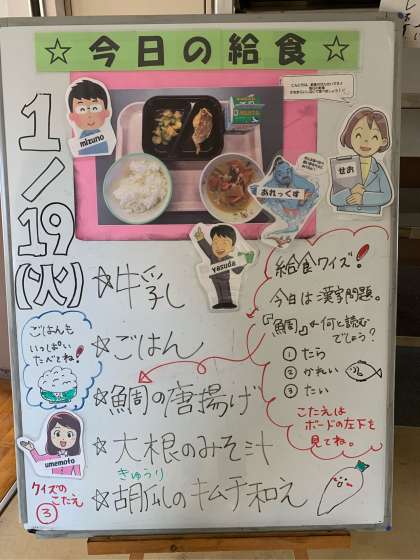 ☆今日の給食☆
1/19(火)
mizuno
せお
あれっくす
yasuda
☆牛乳
☆ごはん
☆鯛の唐揚げ
☆大根のみそ汁
きゅうり
☆胡瓜のキムチ和え
ごはんも
いっぱい
たべてね!
umemoto
クイズの
こたえ
③
給食クイズ!
今日は漢字問題。
『鯛』は何と読む
でしょう?
①たら
②かれい
③たい
こたえは
ボードの左下を
見てね。